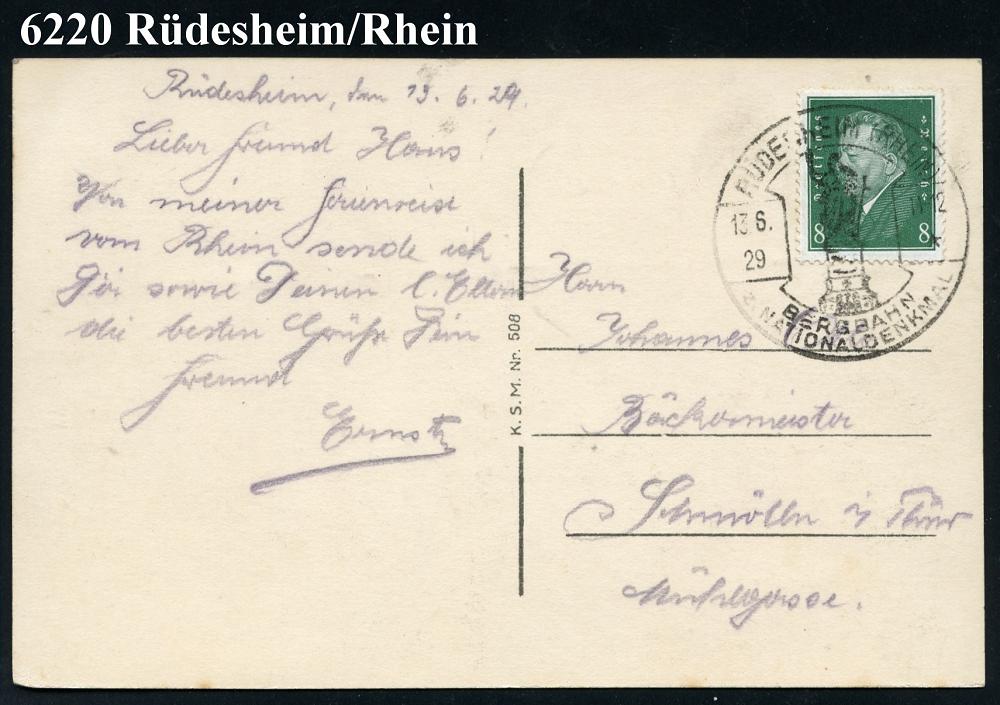 6220 Rüdesheim/Rhein
Rüdesheim, den 13. 6. 29.
Lieber Freund Hans!
Von meiner Ferienreise
vom Rhein sende ich
Dir sowie Deinen l. Eltern
die besten Grüße Dein
Freund
Ernst
K. S. M. Nr. 508
Herrn
Johannes
Bäckermeister
Schmölln i Thür
Mühlgasse.
Deutsches Reich
8 8
RÜDESHEIM (RHEIN)
13 6.
29
BERGBAHN
Z. NATIONALDENKMAL